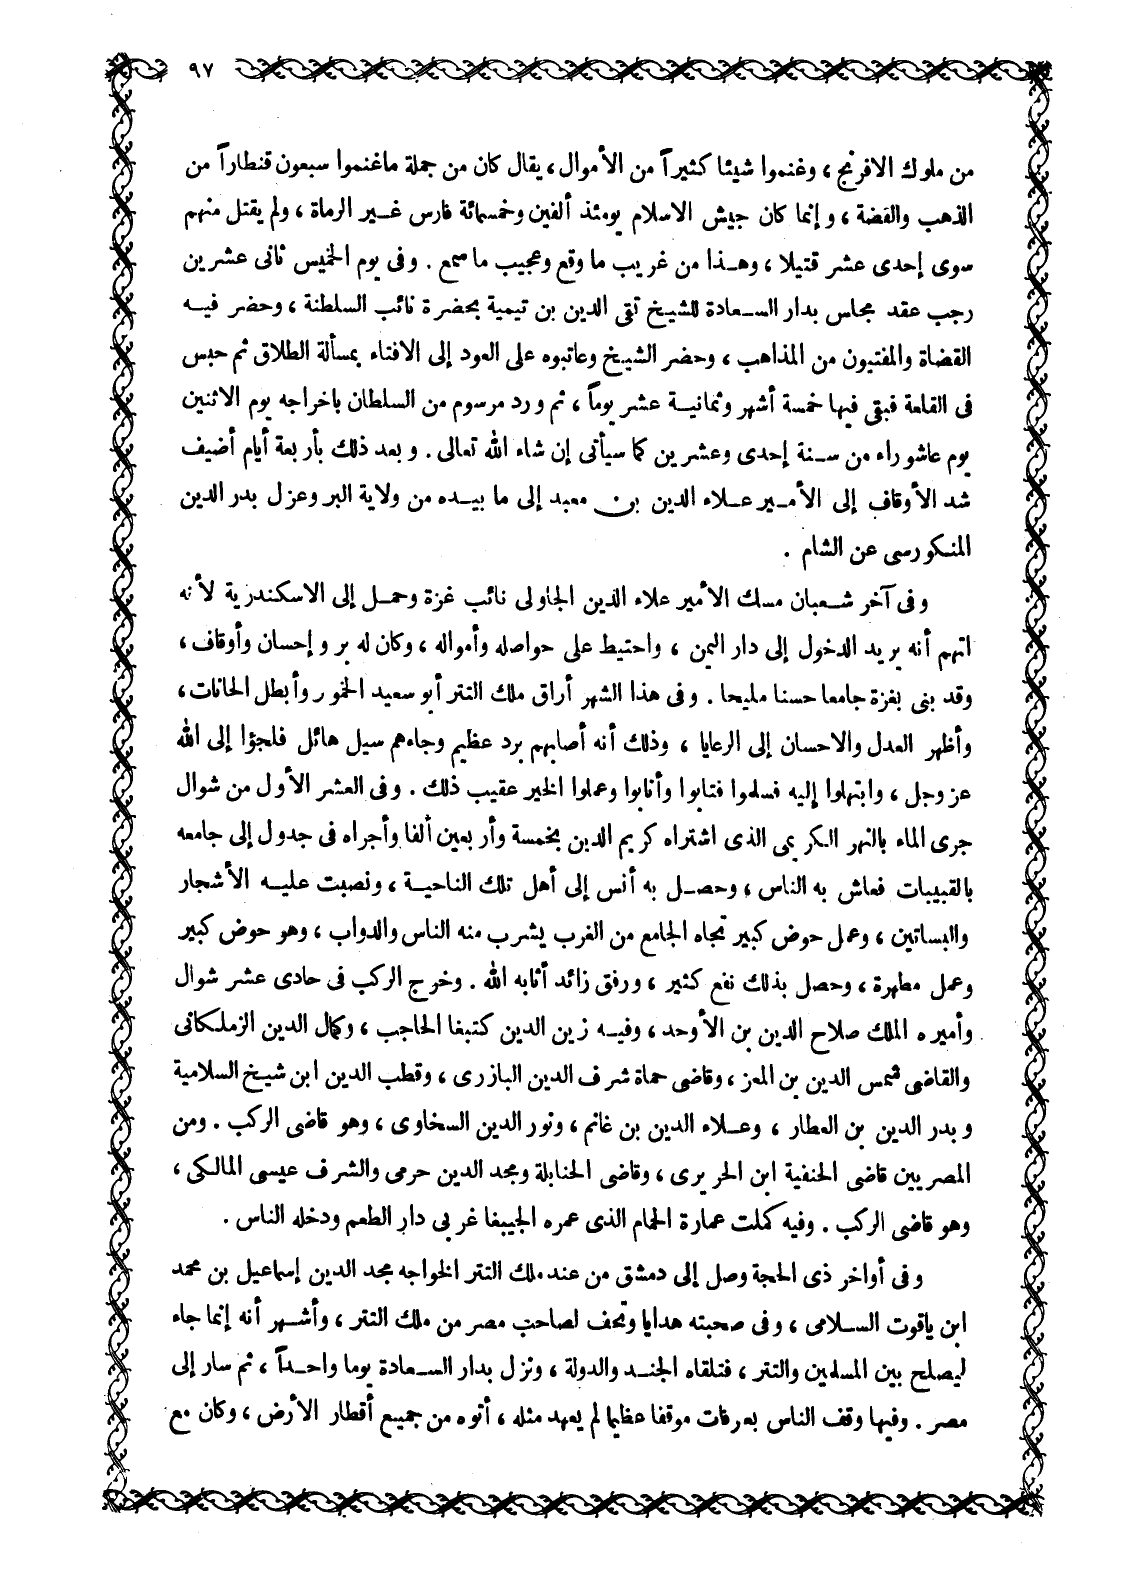 ٩٧
من ملوك الافرنج ، وغنموا شيئا كثيراً من الأموال ، يقال كان من جملة ماغنموا سبعون قنطاراً من
الذهب والفضة ، و إنما كان جيش الاسلام يومئذ ألفين وخمسمائة فارس غير الرماة ، ولم يقتل منهم
سوى إحدى عشر قتيلا ، وهذا من غريب ما وقع وعجيب ما سمع . وفى يوم الخميس ثانى عشرين
رجب عقد مجلس بدار السعادة للشيخ تقى الدين بن تيمية بحضرة نائب السلطنة ، وحضر فيه
القضاة والمفتيون من المذاهب ، وحضر الشيخ وعاتبوه على العود إلى الافتاء بمسألة الطلاق ثم حبس
فى القلعة فبقى فيها خمسة أشهر وثمانية عشر يوماً ، ثم ورد مرسوم من السلطان باخراجه يوم الاثنين
يوم عاشوراء من سنة إحدى وعشرين كما سيأتى إن شاء الله تعالى . و بعد ذلك بأربعة أيام أضيف
شد الأوقاف إلى الأمير علاء الدين بن معبد إلى ما بيده من ولاية البر وعزل بدر الدين
المنكورسى عن الشام .
وفى آخر شعبان مسك الأمير علاء الدين الجاولى نائب غزة وحمل إلى الاسكندرية لأنه
اتهم أنه يريد الدخول إلى دار اليمن ، واحتيط على حواصله وأمواله ، وكان له بر و إحسان وأوقاف ،
وقد بنى بغزة جامعا حسنا مليحا . وفى هذا الشهر أراق ملك التتر أبو سعيد الخمور وأبطل الحانات ،
وأظهر العدل والاحسان إلى الرعايا ، وذلك أنه أصابهم برد عظيم وجاءهم سيل هائل فلجؤا إلى الله
عز وجل ، وابتهلوا إليه فسلموا فتابوا وأنابوا وعملوا الخير عقيب ذلك . وفى العشر الأول من شوال
جرى الماء بالنهر الكريمى الذى اشتراه كريم الدين بخمسة وأربعين ألفا وأجراه فى جدول إلى جامعه
بالقبيبات فعاش به الناس ، وحصل به أنس إلى أهل تلك الناحية ، ونصبت عليه الأشجار
والبساتين ، وعمل حوض كبير تجاه الجامع من الغرب يشرب منه الناس والدواب ، وهو حوض كبير
وعمل مطهرة ، وحصل بذلك نفع كثير ، ورفق زائد أثابه الله . وخرج الركب فى حادى عشر شوال
وأميره الملك صلاح الدين بن الأوحد ، وفيه زين الدين كتبغا الحاجب ، وكمال الدين الزملكانى
والقاضى شمس الدين بن المعز ، وقاضى حماة شرف الدين البازرى ، وقطب الدين ابن شيخ السلامية
و بدر الدين بن العطار ، وعلاء الدين بن غانم ، ونور الدين السخاوى ، وهو قاضى الركب . ومن
المصريين قاضى الحنفية ابن الحريرى ، وقاضى الحنابلة ومجد الدين حرمى والشرف عيسى المالكى ،
وهو قاضى الركب . وفيه كملت عمارة الحمام الذى عمره الجيبغا غربى دار الطعم ودخله الناس .
وفى أواخر ذى الحجة وصل إلى دمشق من عند ملك التتر الخواجه مجد الدين إسماعيل بن محمد
ابن ياقوت السلامى ، وفى صحبته هدايا وتحف لصاحب مصر من ملك التتر ، وأشهر أنه إنما جاء
ليصلح بين المسلمين والتتر ، فتلقاه الجند والدولة ، ونزل بدار السعادة يوما واحداً ، ثم سار إلى
مصر . وفيها وقف الناس بعرفات موقفا عظيما لم يعهد مثله ، أتوه من جميع أقطار الأرض ، وكان مع